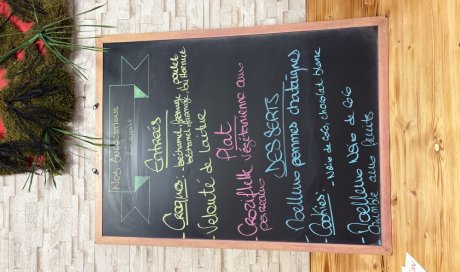 Nos Suggestions
du midi
Entrées
- Croques: - béchamel fromage poulet
- béchamel fromage
- Velouté de laitue
Plat
- Croziflette végétarienne aux
poireaux
DESSERTS
- Moelleux pommes chataignes
- Cookies: - Noix de coco, chocolat blanc
- Moelleux Noix de coco
- Crumble aux fruits